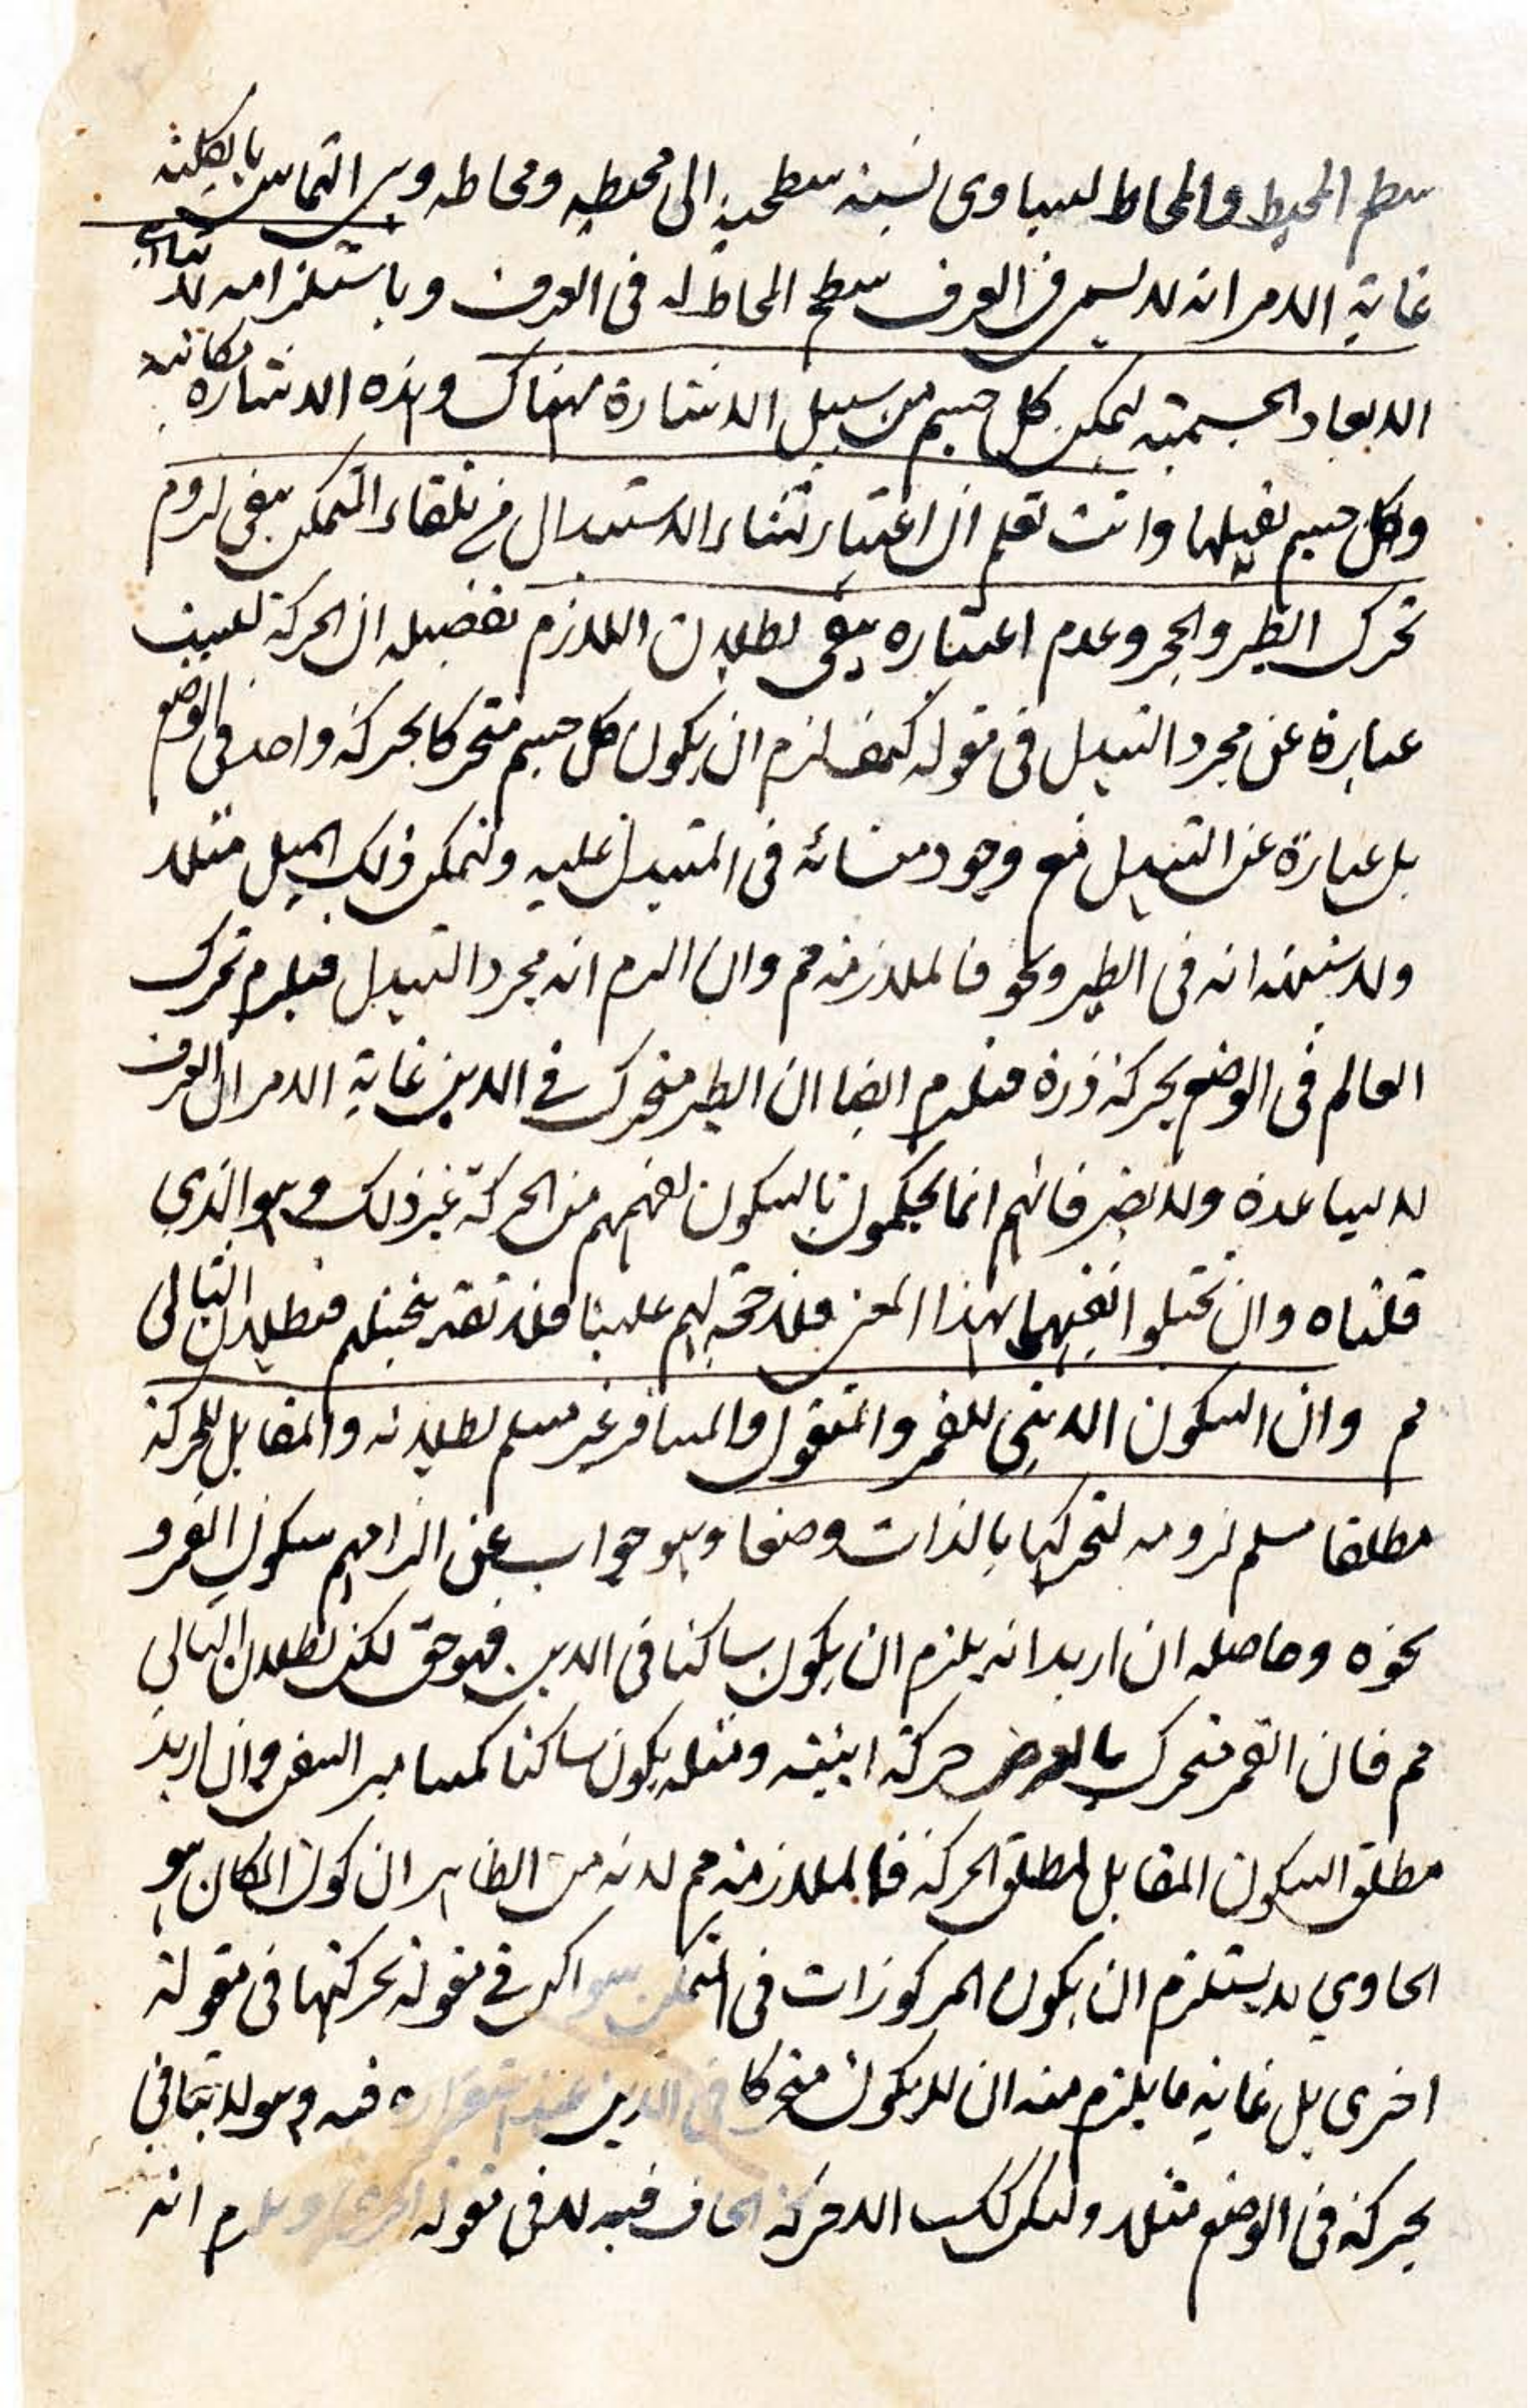 سطح المحيط والمحاط ليساوى نسبة سطحية الى محيطه ومحاطه وبين التماس بالكلية
غاية الامر انه لا يسمى فى العرف سطح المحاط له فى العرف وباستلزامه
الابعاد الجسمية ليمكن كل جسم من سبيل الاشارة هناك وهذه الاشارة مكانية
وكل جسم يقبلها وانت تعلم ان اعتبار الاستبدال فى تلقاء المتمكن ينفى لزوم
تحرك الطير والحجر وعدم اعتباره ينفى بطلان اللازم تفصيله ان الحركة ليست
عبارة عن مجرد التبدل فى مقوله كيف لزم ان يكون كل جسم متحركا بحركة واحد فى الوضع
بل عبارة عن التبدل مع وجود منشائه فى المتبدل عليه وليكن ذلك الميل مثلا
ولا شبهة انه فى الطير ونحو فالملازمة مم وان الزم انه مجرد التبدل فيلزم تحرك
العالم فى الوضع بحركة ذرة فيلزم ايضا ان الطير متحرك فى الاين غاية الامر ان العرف
لا يساعده ولا يضر فانهم انما يحكمون بالسكون لفهمهم من الحركة غير ذلك وهو الذي
قلناه وان تخيلوا نفيهما بهذا المعنى فلا حجة لهم علينا فلا تغتر بتخيلهم فبطلان التالى
مم وان السكون الاينى للقمر والمنقول والمسافر غير مسلم بطلانه والمقابل للحركة
مطلقا مسلم لزومه لتحركها بالذات وضعا وهو جواب عن الزامهم سكون القمر و
نحوه وحاصله ان اريد انه يلزم ان يكون ساكنا فى الاين فهو حق لكن بطلان التالي
مم فان القمر متحرك بالعرض حركة اينية ومثله يكون ساكنا كمسامير السفن وان اريد
مطلق السكون المقابل لمطلق الحركة فالملازمة مم لانه من الظاهر ان كون المكان هو
الحاوي لا يستلزم ان يكون المركوزات فى المتمكن سواكن فى مقولة تحركتها فى مقولة
اخرى بل غاية ما يلزم منه ان لا يكون متحركا فى الاين عند استقراره فيه وهو لا ينافي
بحركة فى الوضع مثلا وليكن الحركة فيه لا فى مقولة اخرى ويلزم انه